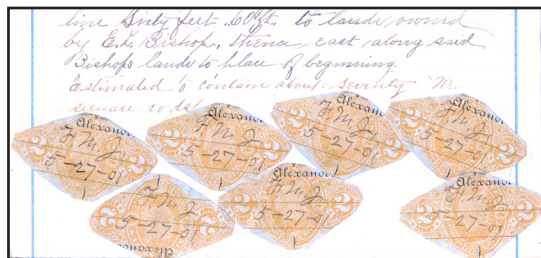 line Sixty feet .60ft. to lands owned
by E.L. Bishop, thence, east along said
Bishops lands to place of beginning.
Estimated to contain about seventy 70.
square rods
Alexand
2 F M J 2
5-27-01
Alexander
2 F M J 2
5-27-01
Alexander
2 F M J 2
5-27-01
Alexander
2 F M J 2
5-27-01
2 F M J 2
5-27-01
Alexander
Alexander
2 F M J 2
5-27-01
Alexander
2 F M J 2
5-27-01